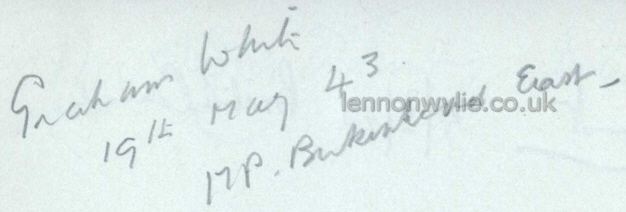 Graham White
19th May 43
lennonwylie.co.uk
MP. Birkenhead East